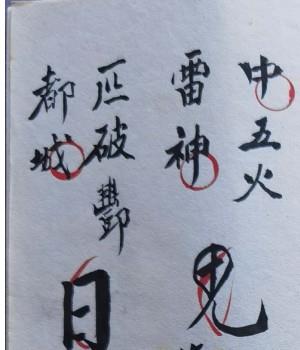 中五火
雷神
破酆
都城
日